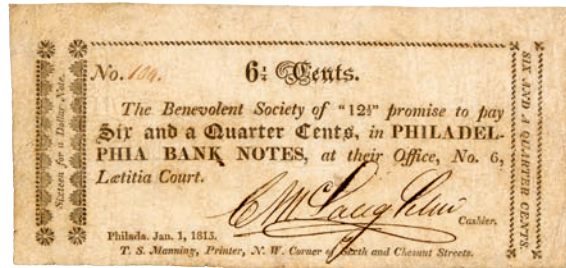 Sixteen for a Dollar Note.
No. 104. 6¼ Cents.
The Benevolent Society of "12½" promise to pay
Six and a Quarter Cents, in PHILADEL-
PHIA BANK NOTES, at their Office, No. 6,
Lætitia Court.
C McLaughlin Cashier.
Philada. Jan. 1, 1815.
T. S. Manning, Printer, N. W. Corner of Sixth and Chesnut Streets.
SIX AND A QUARTER CENTS.